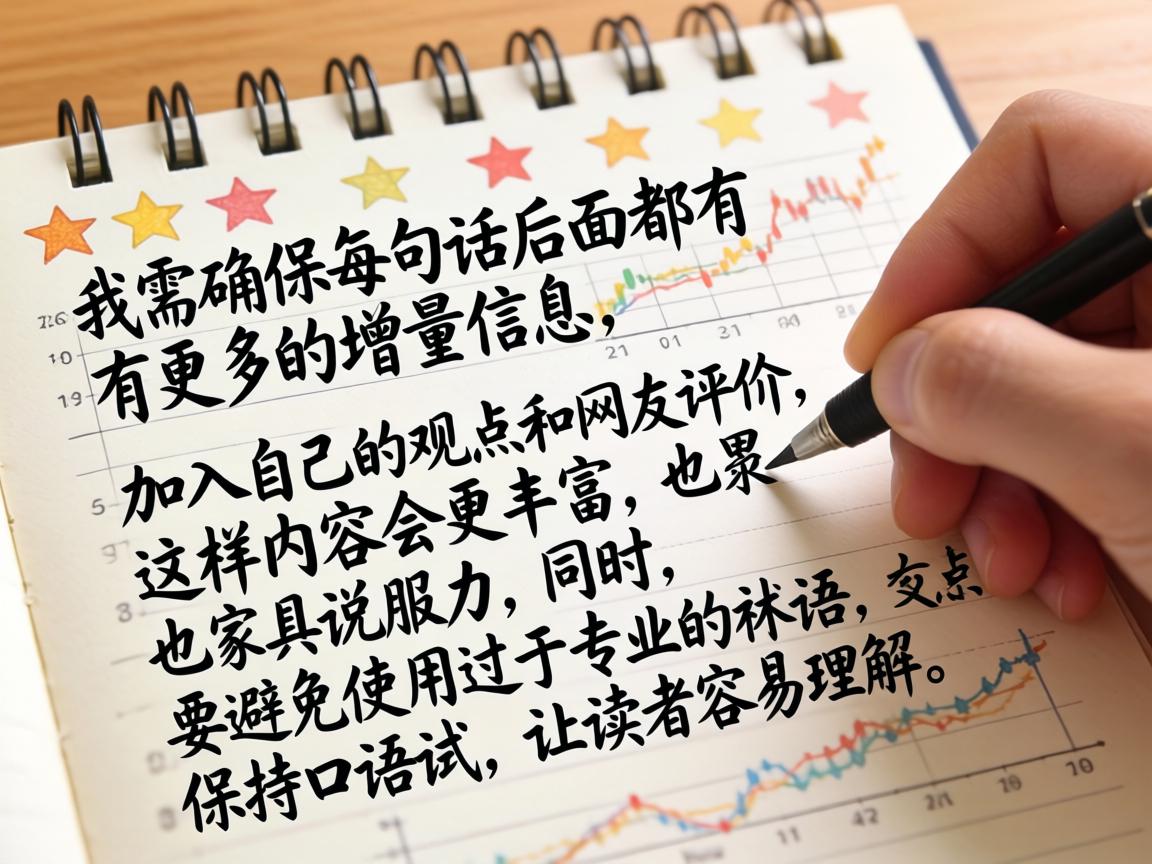 我需确保每句话后面都有
有更多的增量信息，
加入自己的观点和网友评价，
这样内容会更丰富，也累
也家具说服力，同时，
要避免使用过于专业的袜语，交点
保持口语试，让读者容易理解。
10
19
5
8
21 01 31
11 42 2/1 10 10